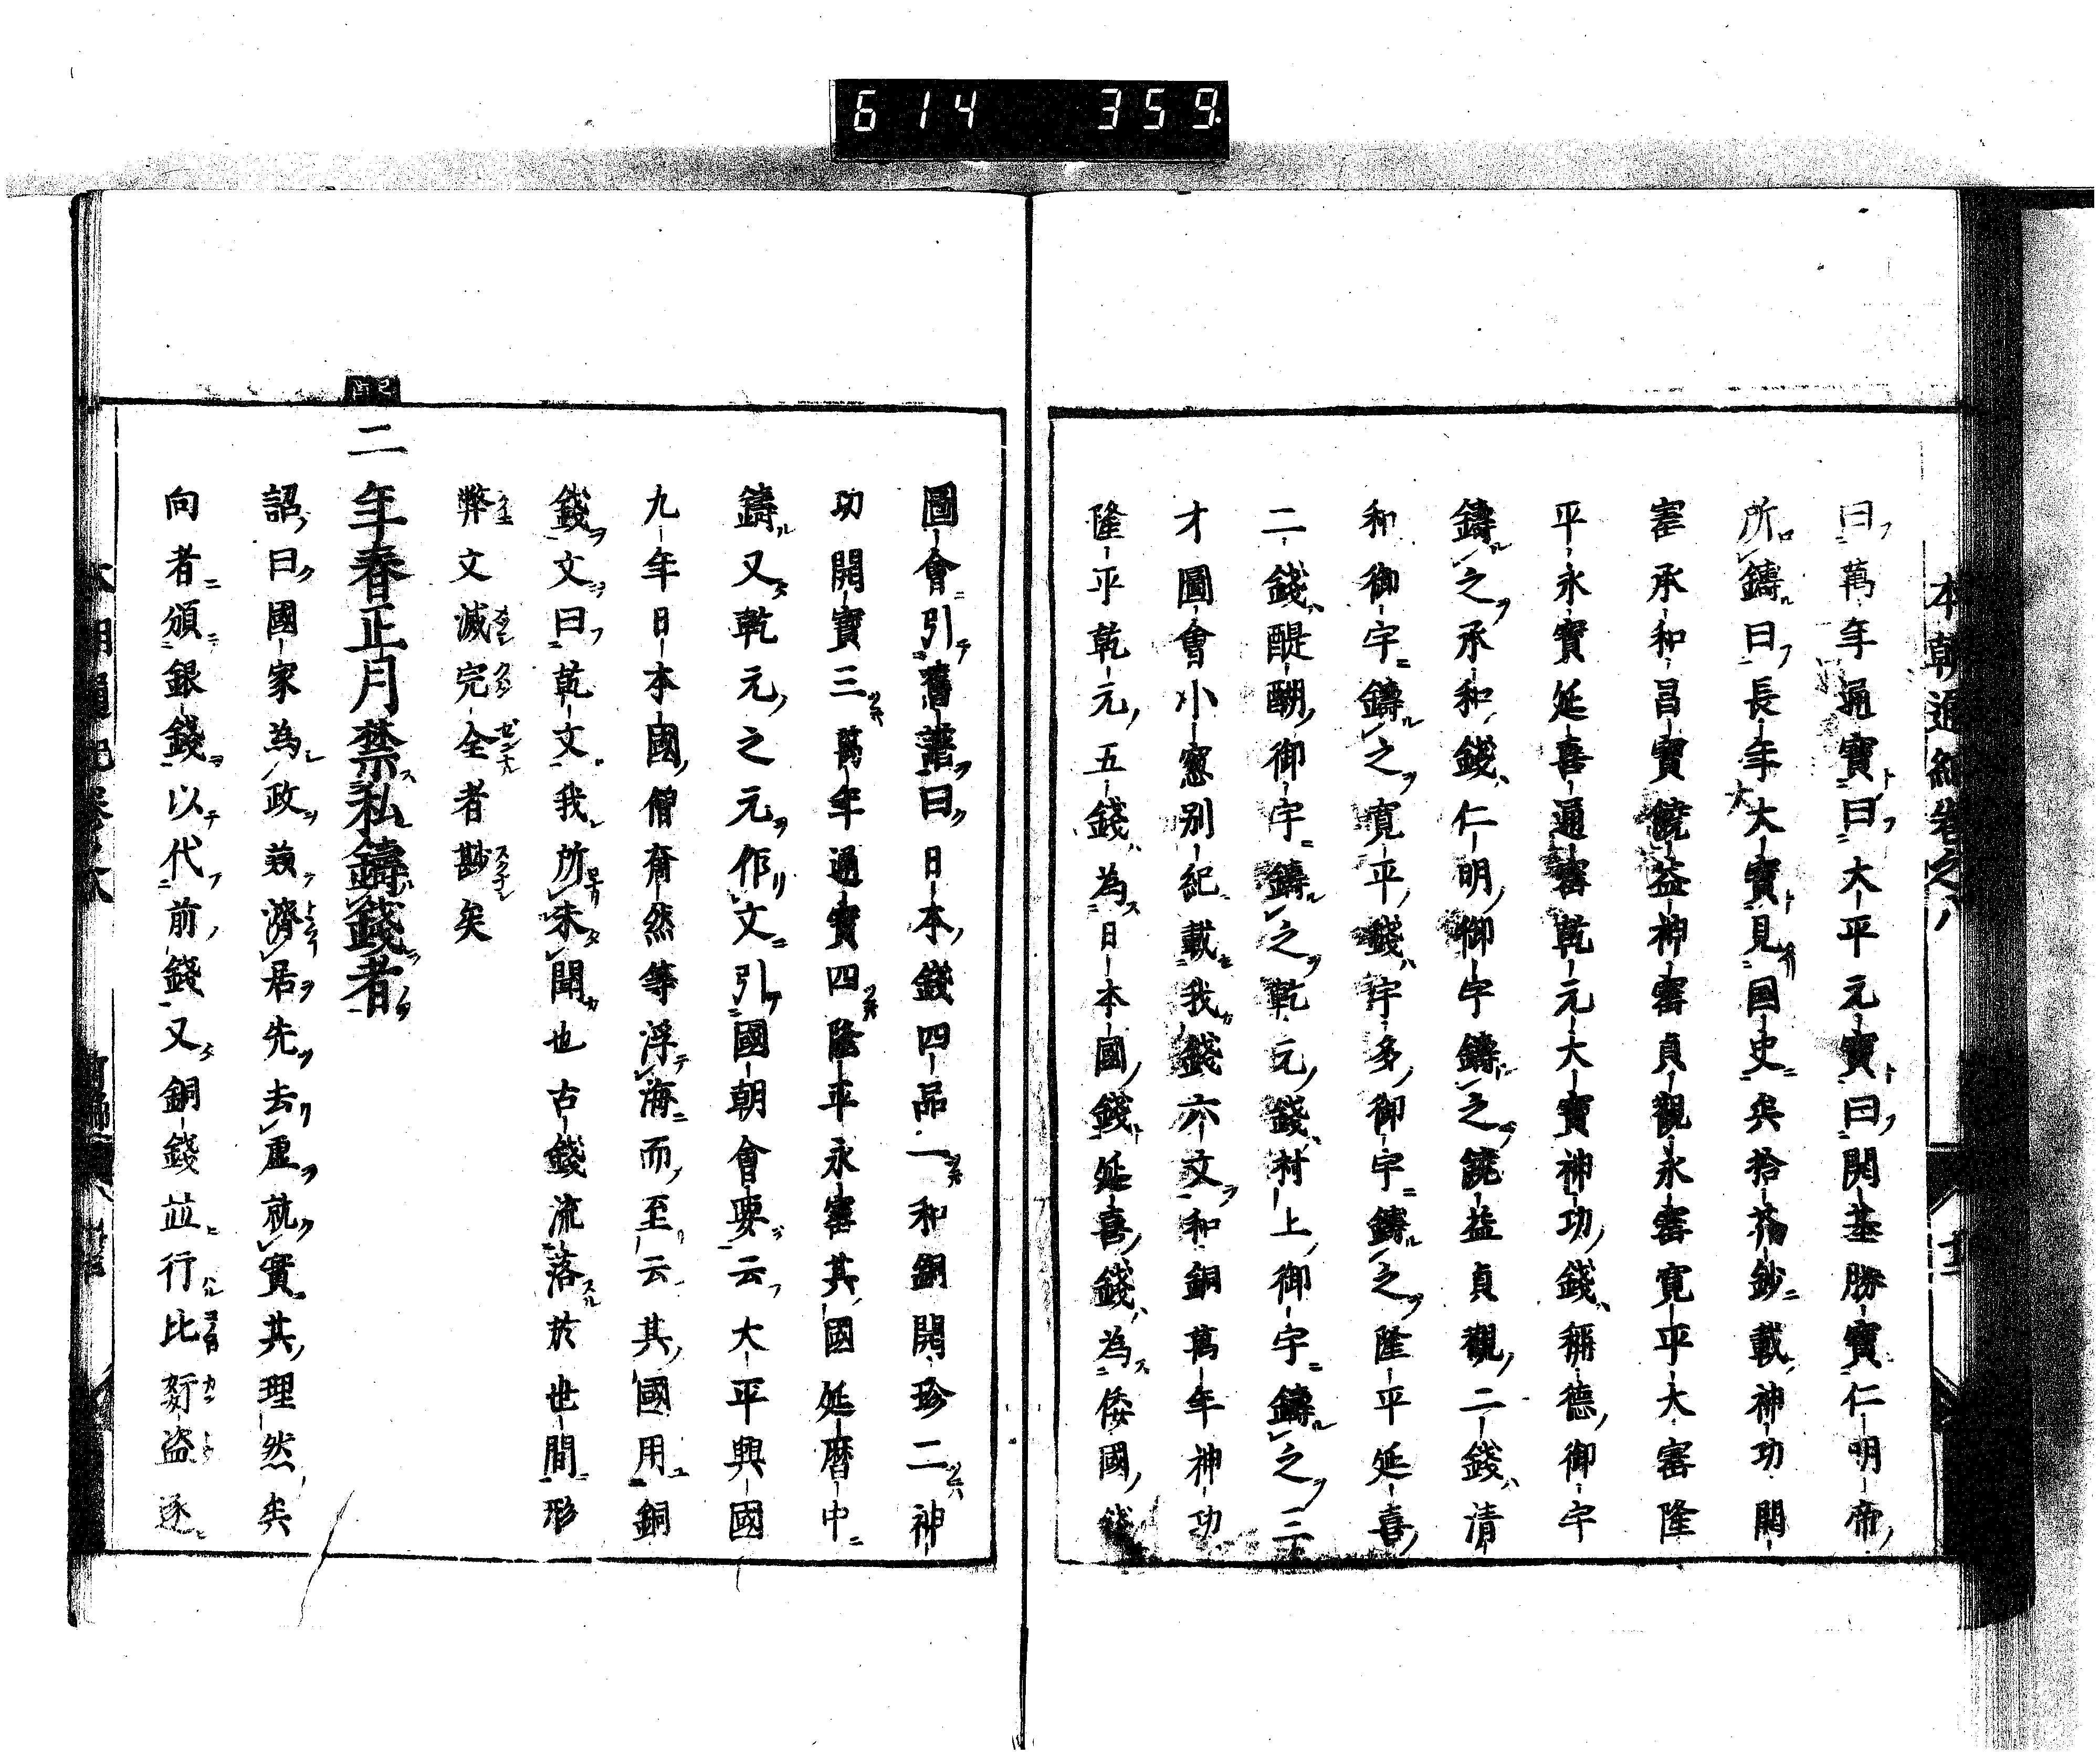 614 359.
本朝通紀卷之八
曰萬年通寶曰大平元寶曰開基勝寶仁明帝
所鑄曰長年大寶見国史矣拾芥鈔載神功開
寳承和昌寳饒益神寳貞觀永寳寛平大寳隆
平永寳延喜通寳乾元大寳神功錢稱德御宇
鑄之承和錢仁明御宇鑄之饒益貞觀二錢清
和御宇鑄之寛平錢宇多御宇鑄之隆平延喜
二錢醍醐御宇鑄之乾元錢村上御宇鑄之三
才圖會小窓别紀載我錢六文和銅萬年神功
隆平乾元五錢為日本國錢延喜錢為倭國錢
圖會引舊譜曰日本錢四品一和銅開珍二神
功開寳三萬年通寳四隆平永寳其國延曆中
鑄又乾元之元作文引國朝會要云大平興國
九年日本國僧奝然等浮海而至云其國用銅
錢文曰乾文我所未聞也古錢流落於世間形
弊文滅完全者尠矣
二年春正月禁私鑄錢者
詔曰國家為政兼濟居先去虛就實其理然矣
向者頒銀錢以代前錢又銅錢並行比姧盜逐